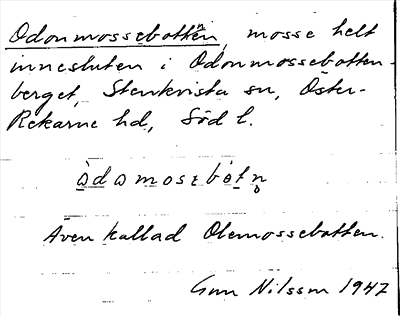 Odonmossebotten, mosse helt
innesluten i Odonmossebotten-
berget, Stenkvista sn, Öster-
Rekarne hd, Söd l.
Även kallad Olemossebotten.
Gun Nilsson 1947